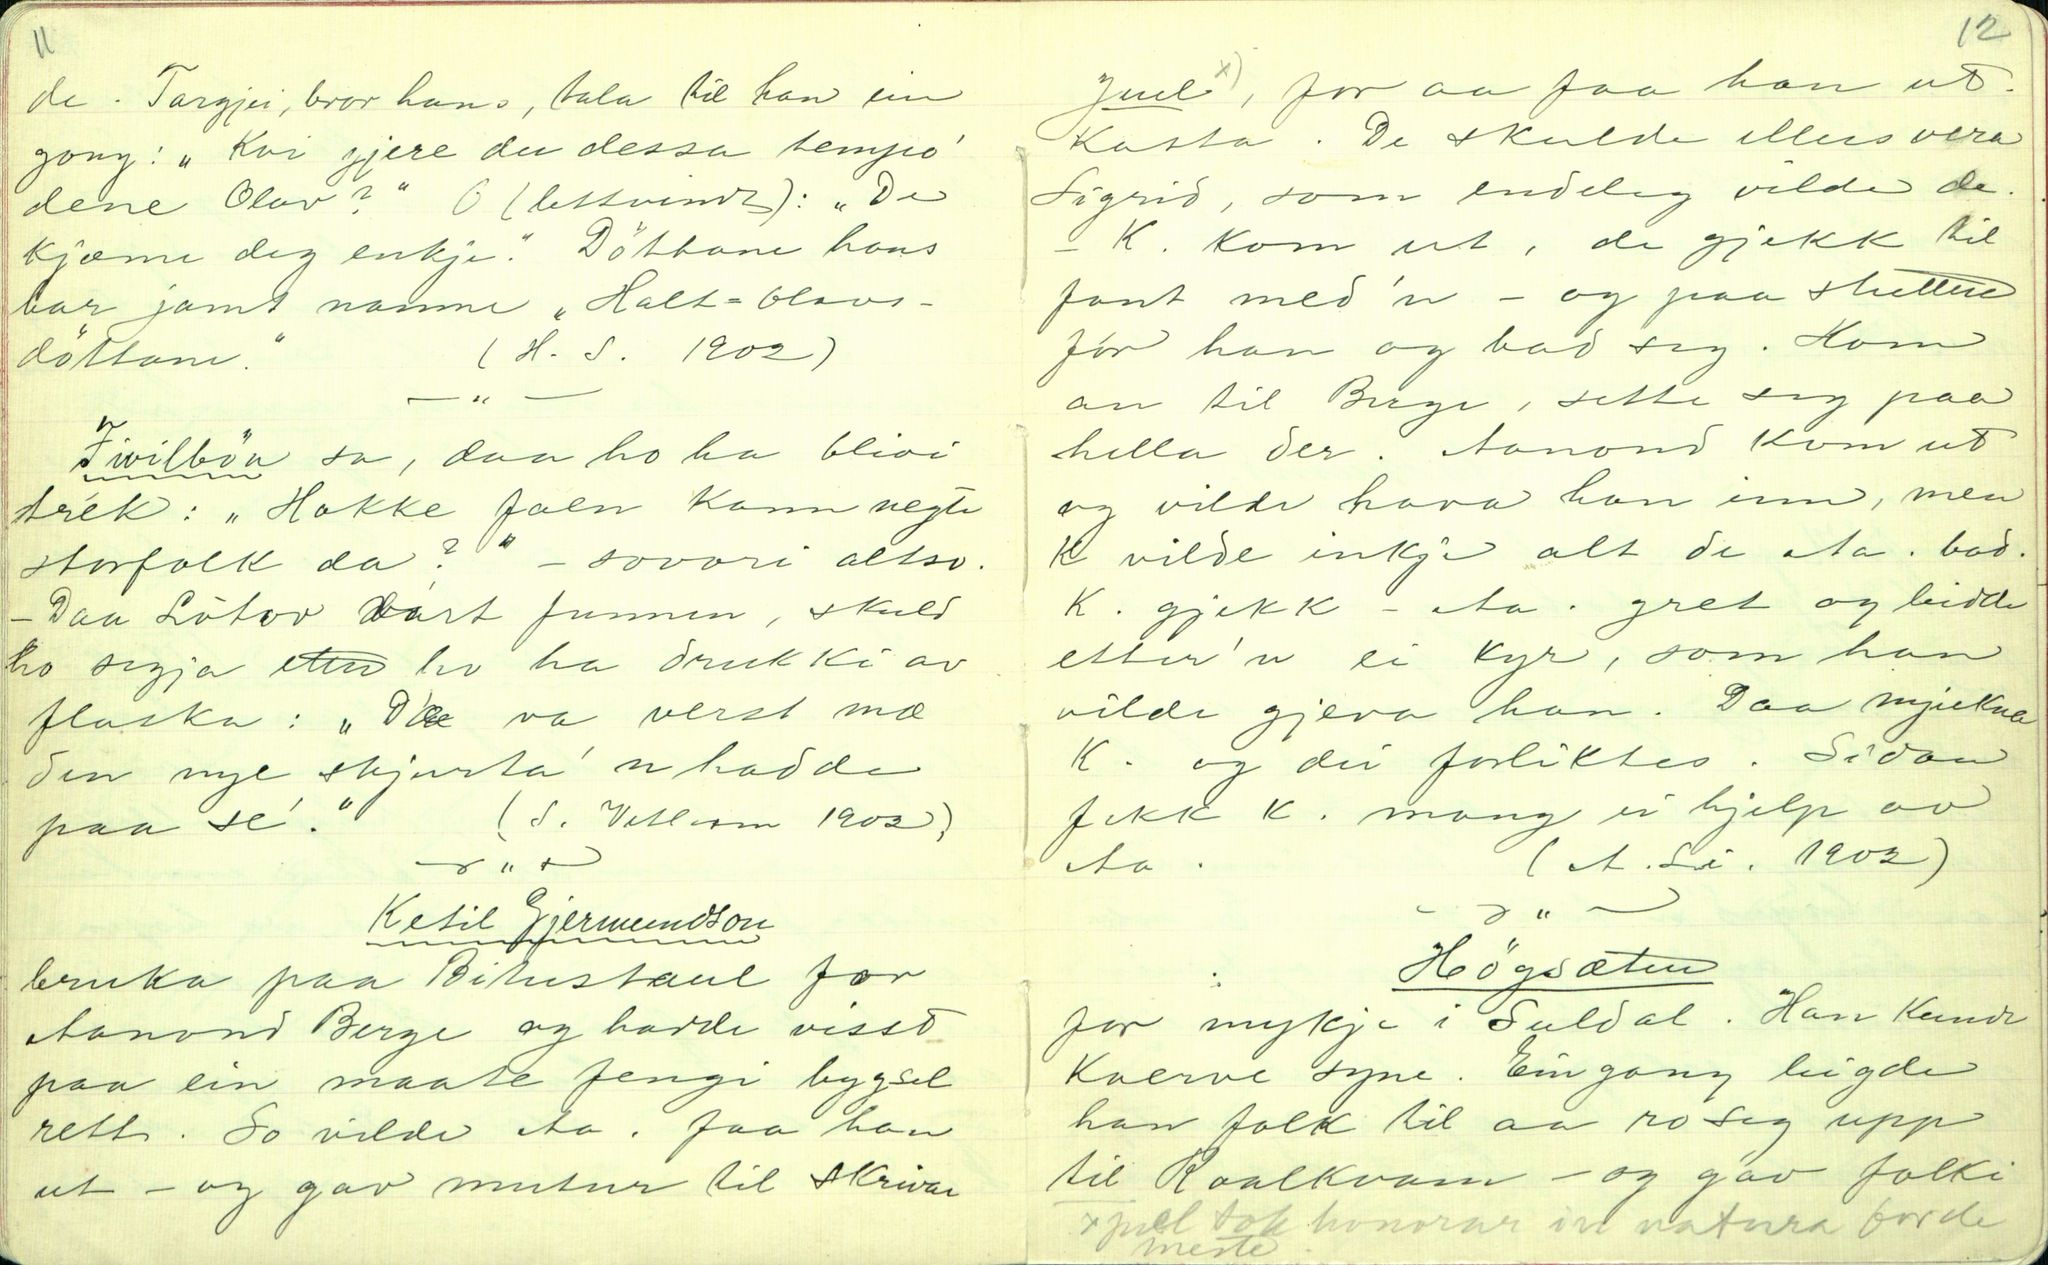 11
de. Targjei, bror hans, tala til han ein
gong: „Kvi gjere du dessa tempó
dene Olav?" O (lettvindt): „De
kjæme deg enkje." Döttane hans
bar jamt namne „Halt=Olavs-
döttane." (H. S. 1902)
— „ —
Tvilböu sa, daa ho ha blivi
trék: „Hokke faen kann negte
storfolk da?" – sovori altso.
– Daa Lötov vart funnen, skuld
ho segja etter ho ha drukki av
flaska: „Dæ va verst mæ
den nye skjorta'n hadde
paa sé." (S. Vetlesom 1902)
— „ —
Ketil Gjermundson
bruka paa Bitustaul for
Aanond Berge og hadde visst
paa ein maate fengi bygsel
rett. So vilde Aa. faa han
ut – og gav mutur til skrivar
12
Juel x), for aa faa han ut-
kasta. De skulde ellers vera
Sigrid, som endeleg vilde de.
– K. kom ut, de gjekk til
fant med'n – og paa slutten
fór han og bad seg. Kom
an til Berge, sette seg paa
hella der. Aanond kom ut
og vilde hava han inn, men
K vilde inkje alt de Aa. bad.
K. gjekk – Aa. gret og leidde
etter'n ei kyr, som han
vilde gjeva han. Daa mjukna
K. og dei forliktes. Sidan
fekk K. mang ei hjelp av
Aa. (A. Li. 1902)
— „ —
Högsæteren
for mykje i Suldal. Han kunde
kverve syne. Ein gong leigde
han folk til aa ro seg upp
til Roalkvam – og gav folki
x Juel tok honorar in natura for de
meste.